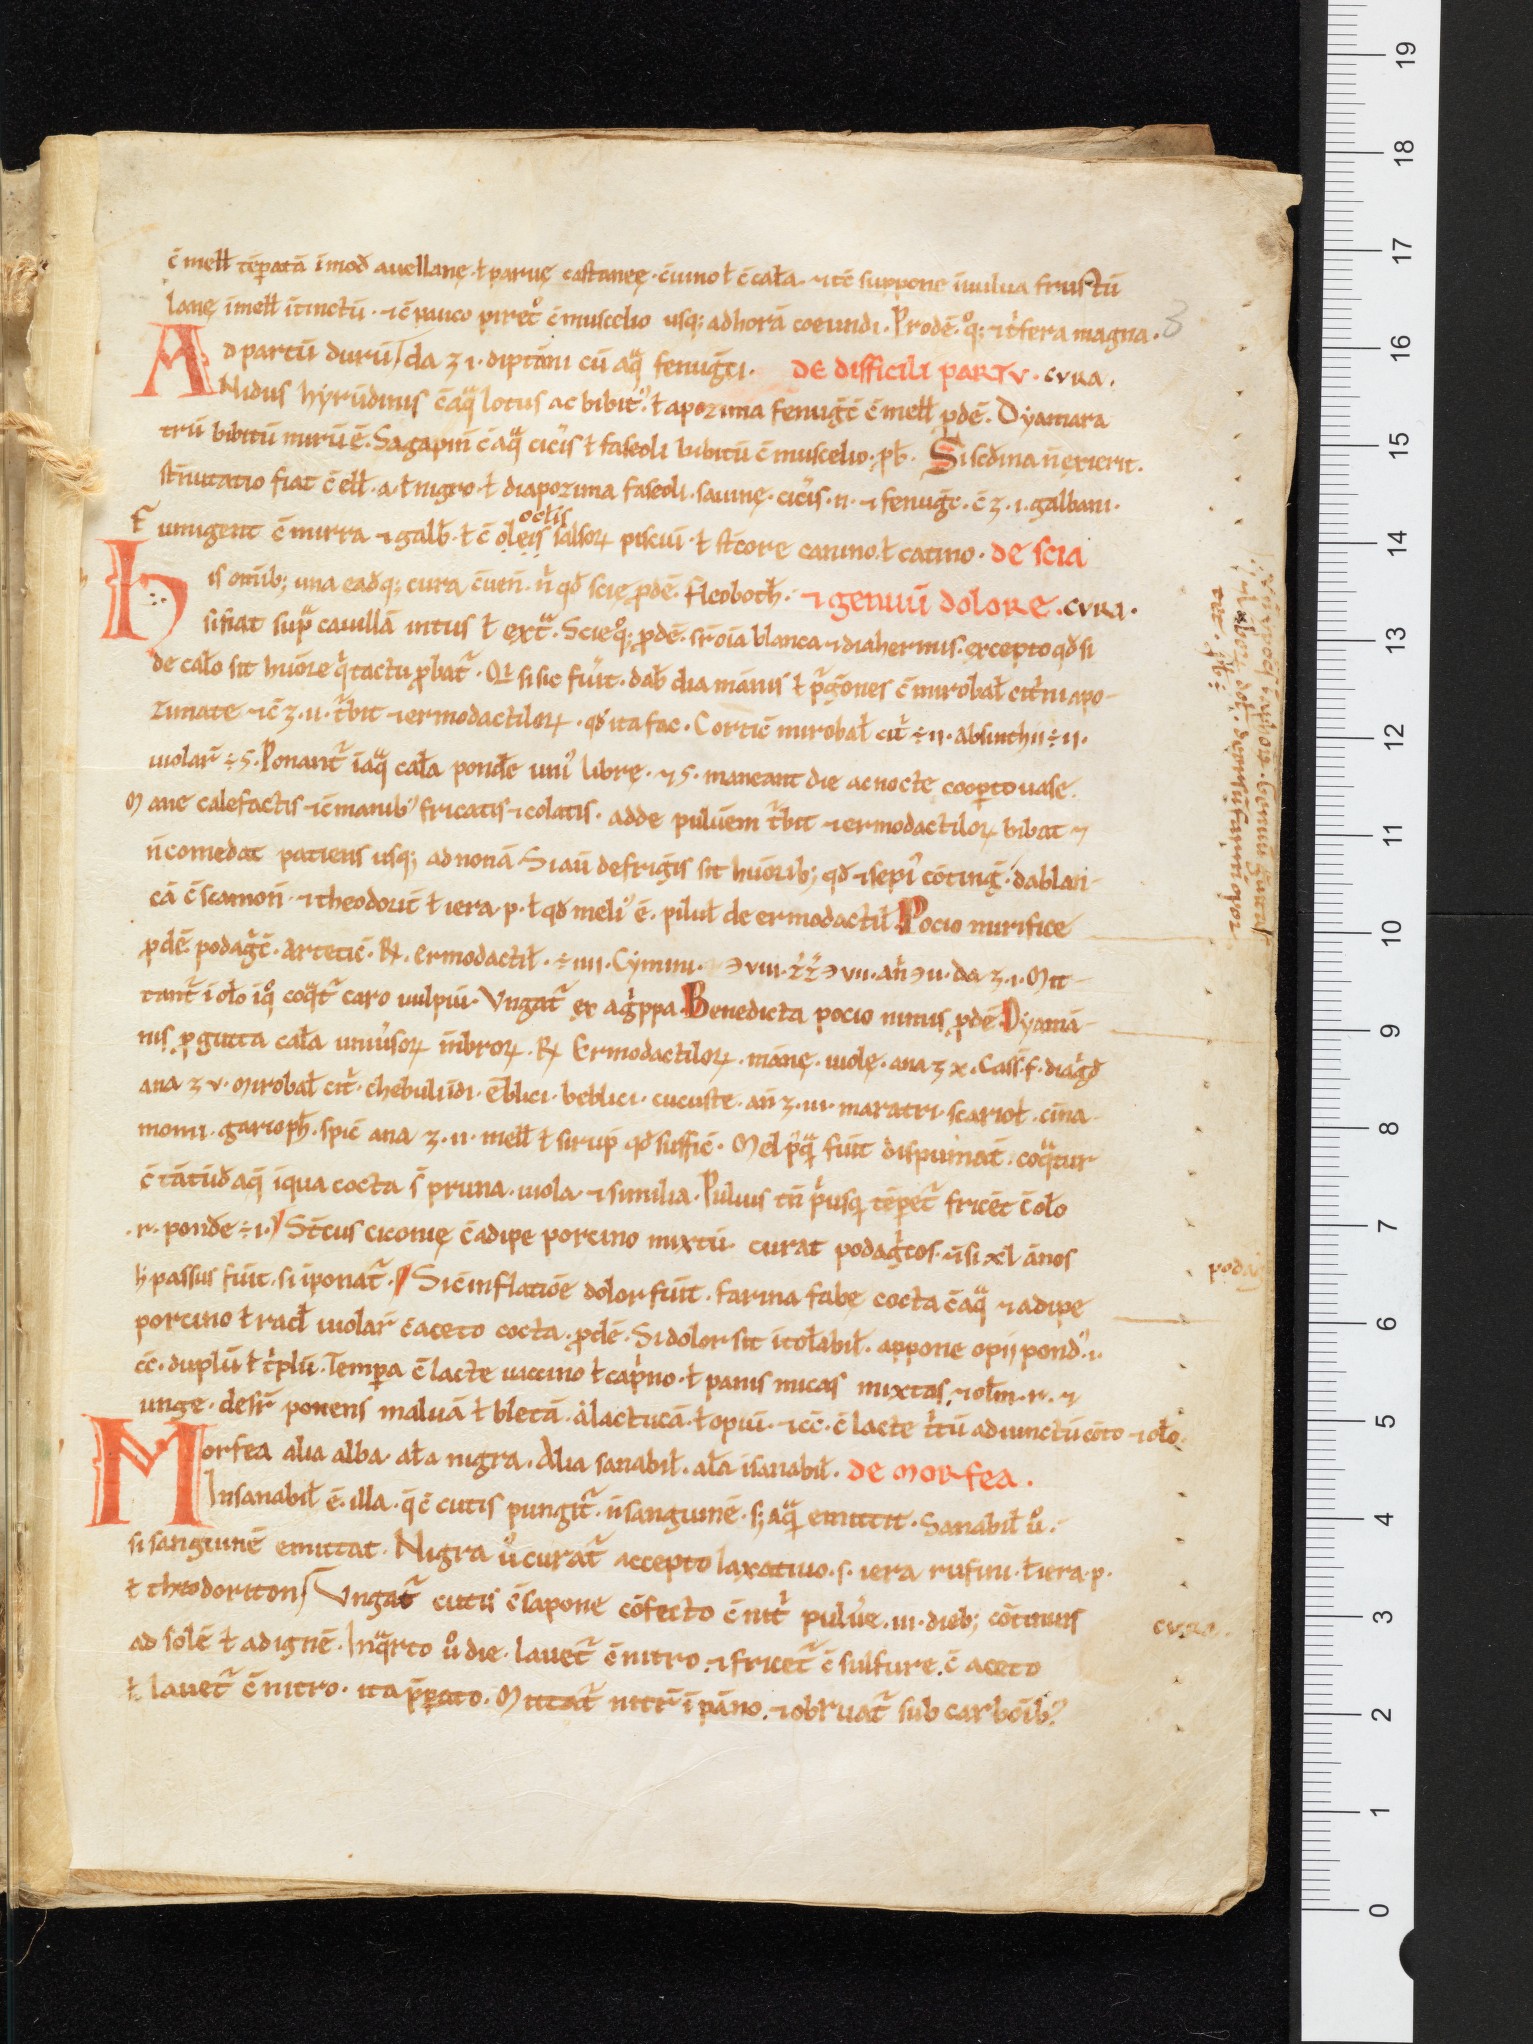 c̄ mełł tēperatā ī mod̄ auellanę · ł paruę castaneę · c̄ uino ł c̄ cała · ⁊ tc̄ suppone īuulua frustū
lanę ī mełł ītinctū · ⁊ c̄ pauco piret̊ c̄ muscelio usq; ad horā coeundi · Prodē · q̊; ⁊ t̄fera magna .
3
Ad partū durū da ʒ i · diptāni cū aq̄ fenugc̄i · DE DIFFICILI PARTV · CVRA .
Nidus hyrūdinis c̄ aq̄ lotus ac bibit᷒ · ł apozima fenugc̄ c̄ mełł ꝓdē · Dyamara
trū bibitū mirū ē · Sagapin̄ c̄ aq̄ cic̄is ł faseoli bibitū c̄ muscelio · ꝓb̄ · Si sc̄dina n̄ exierit .
st̄nutatio fiat c̄ ełł · a · ł nigro · ł diapozima faseoli · sauinę · cic̄is · n · ⁊ fenugc̄ · c̄ ʒ · i · galbani ·
Fumigent c̄ mirra ⁊ galb̄ · ł c̄ oleis salsoꝝ pisciū · ł st̄core canino · ł catino · DE SCIA
oct̄is
His omīb; una eadq; cura c̄uen̄ · n̄ qd̄ scię ꝓdē · fleoboth̄ · ⁊ GENUŪ DOLORE · CVRA ·
si fiat supᵃ cauillā intus ł extᵃ · Scię q̊; ꝓdē · st̄oia blanca ⁊ diahermis · excepto qd̄ si
de cało sit hūore q̄ tactu ꝓbat᷑ · Q̄ si sic fūit · dab̄ dia mānis ł pᵃgōnes c̄ mirobał cit̄ni apo-
zimate ⁊ c̄ ʒ · ii · t᷑bit ⁊ ermodactiloꝝ · qd̄ ita fac · Corticē mirobał cit̄ ÷ ii · absinthii ÷ ii ·
uiolar̄ ÷ 5 · Ponant᷑ ī aq̄ cała pond̄e uni᷒ librę · ⁊ 5 · maneant die ac nocte cooꝑto uase .
Mane calefactis ⁊ c̄ manib᷒ fricatis ⁊ colatis · adde puluēm t᷑bit ⁊ ermodactiloꝝ bibat ⁊
n̄ comedat patiens usq; ad nonā Si aū de frigīs sit hūorib; qd̄ ⁊ sepi᷒ cōtinḡ · da blan-
cā c̄ scamon̄ · ⁊ theodoric̄ ł iera · p · ł qd̄ meli᷒ ē · piluł de ermodactił · Pocio mirifice
ꝓdē podagc̄ · artetic̄ · ℞ · ermodactił · ÷ iiii · Cymini · ℈ viii · ZZ ℈ vii · an̄ ℈ ii · da ʒ · i · Mit-
tant᷑ ī oło ī q̊ coqᵃt᷑ caro uulpiū · Vngat᷑ ex ag̊ppa · Benedicta pocio nimis ꝓdē Dyamā-
nis ꝓ gutta cała uniu᷒soꝝ mēbroꝝ · ℞ Ermodactiloꝝ · mānę · uiolę · ana ʒ x · Cass · f · diag̊d
ana ʒ v · Mirobał cit̄ · chebuli īdi · ēblici · beblici · cucuste · an̄ ʒ · iii · maratri · scarioł · cina-
momi · garioph̄ · spic̄ ana ʒ · ii · mełł ł sirup̄ qd̄ suffic̄ · Mel p̊qᵃ fūit dispumāt · coqᵃtur
c̄ tātūd aq̄ ī qua cocta s̄ pruna · uiola · ⁊ similia · Puluis tn̄ p̊usq̄ tēpet᷑ fricēt c̄ oło
· r · pond̄e ÷ i · St̄cus ciconię c̄ adipe porcino mixtū curat podagc̄os · ⁊ si xl ānos
h̄ passus fūit · si īponat᷑ · Si c̄ inflatiōe dolor fūit · farina fabe cocta c̄ aq̄ ⁊ adipe
porcino ł rad̄ uiolar̄ c̄ aceto cocta · ꝓdē · Si dolor sit ītołabił · appone opij pond᷒ · i ·
c̄c · duplū ł t᷑plū · Tempa c̄ lacte uaccino ł cap̊no · ł panis micas mixtas · ⁊ ołm · r · ⁊
unge · desr̄ ponens maluā ł bletā · ł lactucā · ł opiū · ⁊ c̄c · c̄ lacte t᷑tū adiunctū cōto ⁊ oło .
Morfea alia alba · ała nigra · Alia sanabił · ała īsanabił · DE MORFEA .
Insanabił ē · illa · q̄ c̄ cutis pungit᷑ · n̄ sanguinē · s; aq̄ emittit · Sanabił ů ·
si sanguinē emittat · Nigra ů curat᷑ accepto laxatiuo · s · iera rufini · ł iera · p ·
ł theodoriton Vngat᷑ cutis c̄ sapone cōfecto c̄ nit̊ pulūe · iii · dieb; cōtinuis
ad solē ł ad ignē · In qᵃrto ů die · lauet᷑ c̄ nitro · ⁊ fricet᷑ c̄ sulfure · c̄ aceto
ł lauet᷑ c̄ nitro · ita p̄parato · Mittat᷑ nitr̄ ī pāno · ⁊ obruat᷑ sub carbōib᷒
podag
CVRA .
0
1
2
3
4
5
6
7
8
9
10
11
12
13
14
15
16
17
18
19